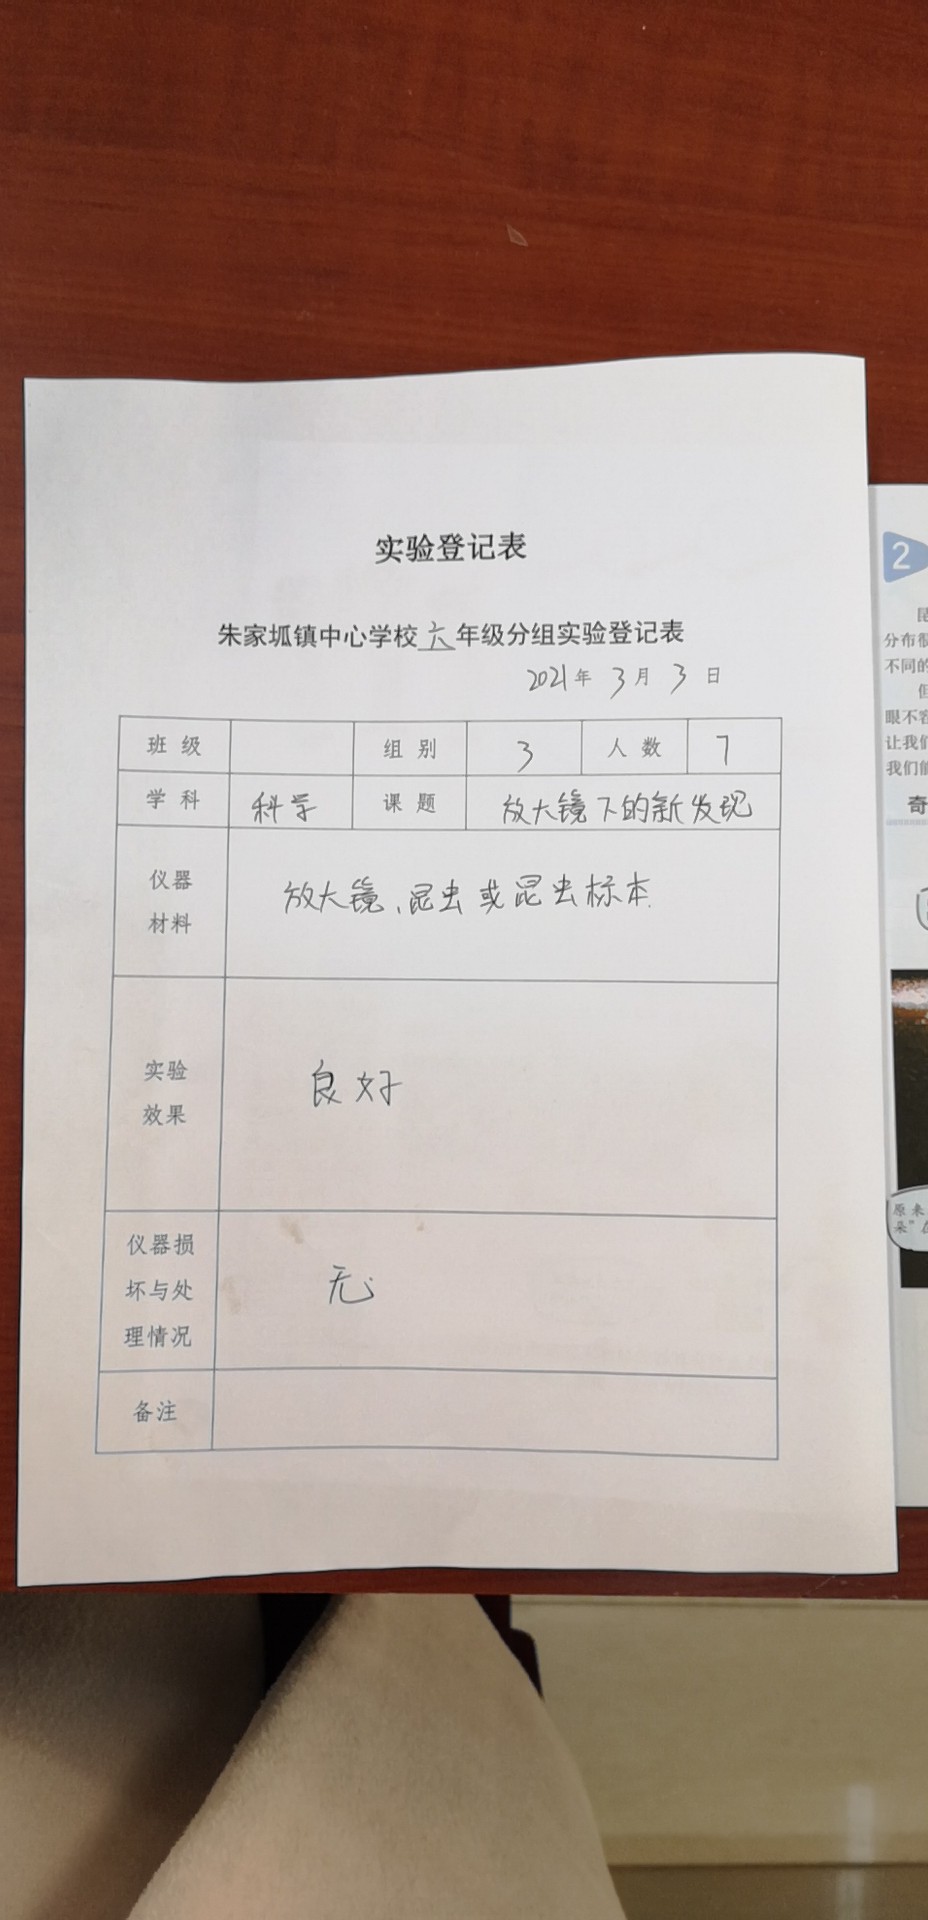 实验登记表
朱家坬镇中心学校六年级分组实验登记表
2021年 3月 3日
班级 组别 3 人数 7
学科 科学 课题 放大镜下的新发现
仪器
材料
放大镜、昆虫或昆虫标本.
实验
效果
良好
仪器损
坏与处
理情况
无
备注
2
昆
分布很
不同的
但
眼不容
让我们
我们能
奇
原来
朵"